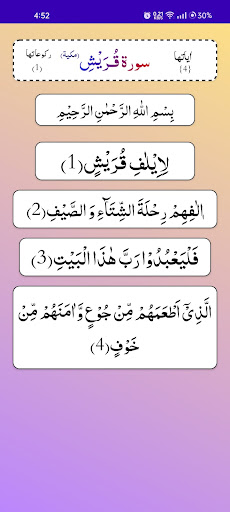 4:52
30%
اٰیاتها {4} سورة قُرَيْشٍ (مكية) ركوعاتها (1)
بِسْمِ اللهِ الرَّحْمٰنِ الرَّحِيْمِ
لِاِيْلٰفِ قُرَيْشٍ(1)
اٖلٰفِهِمْ رِحْلَةَ الشِّتَآءِ وَ الصَّيْفِ(2)
فَلْيَعْبُدُوْا رَبَّ هٰذَا الْبَيْتِ(3)
الَّذِىْۤ اَطْعَمَهُمْ مِّنْ جُوْعٍ وَّاٰمَنَهُمْ مِّنْ
خَوْفٍ(4)